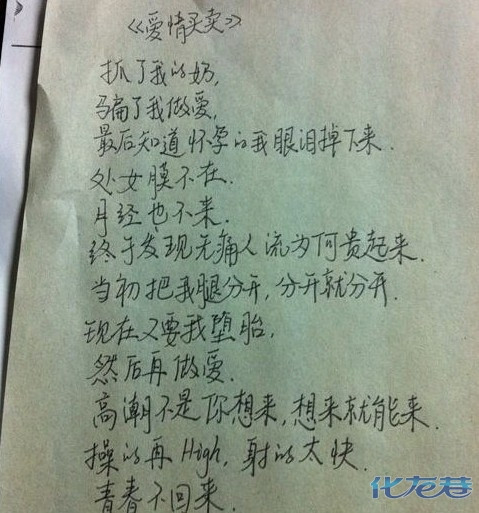 《爱情买卖》
抓了我的奶,
骗了我做爱,
最后知道怀孕的我眼泪掉下来.
处女膜不在.
月经也不来.
终于发现无痛人流为何贵起来.
当初把我腿分开,分开就分开.
现在又要我堕胎,
然后再做爱.
高潮不是你想来,想来就能来.
操的再High,射的太快.
青春不回来.
化龙巷